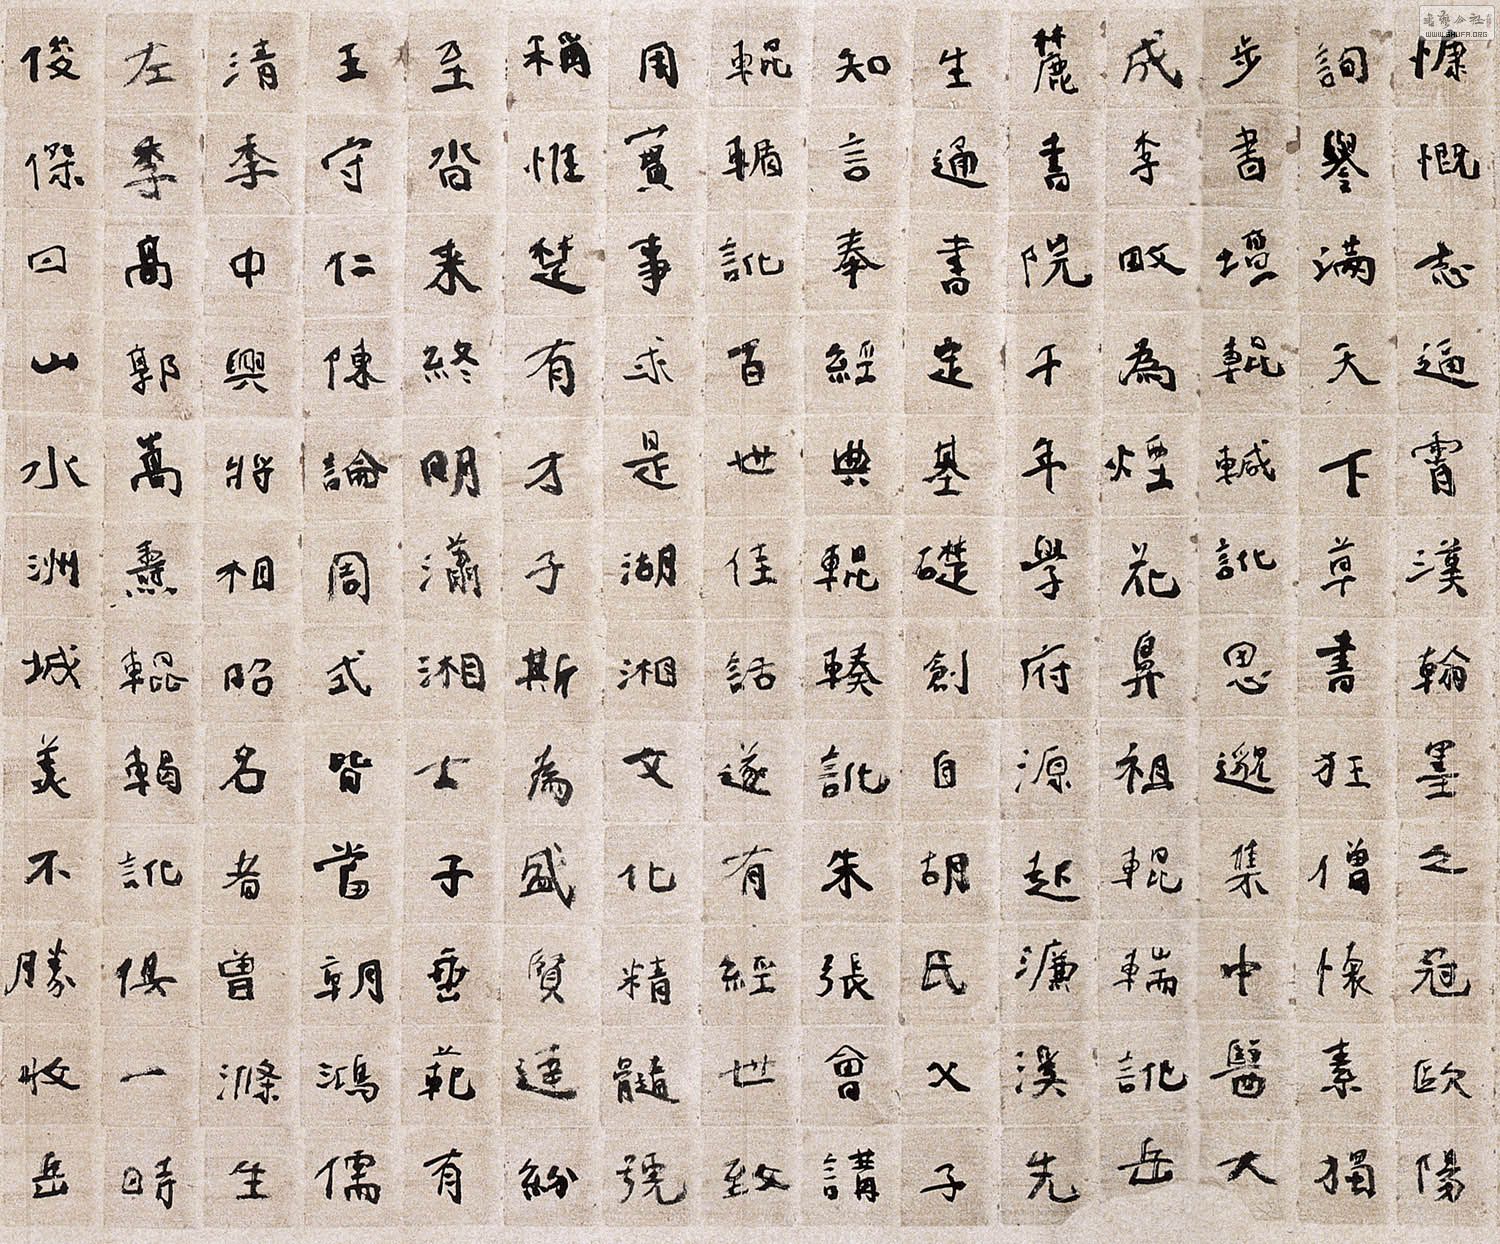 慷慨志逼霄漢翰墨之冠歐陽
詢譽滿天下草書狂僧懷素獨
步書壇輥輱訛思邈集中醫大
成李畋為煙花鼻祖輥輲訛岳
麓書院千年學府源起濂溪先
生通書定基礎創自胡氏父子
知言奉經典輥輳訛朱張會講
輥輴訛百世佳話遂有經世致
用實事求是湖湘文化精髓號
稱惟楚有才子斯為盛賢達紛
至沓来終明瀟湘士子垂範有
王守仁陳論周式皆當朝鴻儒
清季中興將相昭名者曾滌生
左季高郭嵩燾輥輵訛俱一時
俊傑曰山水洲城美不勝收岳
WWW.SHUFA.ORG